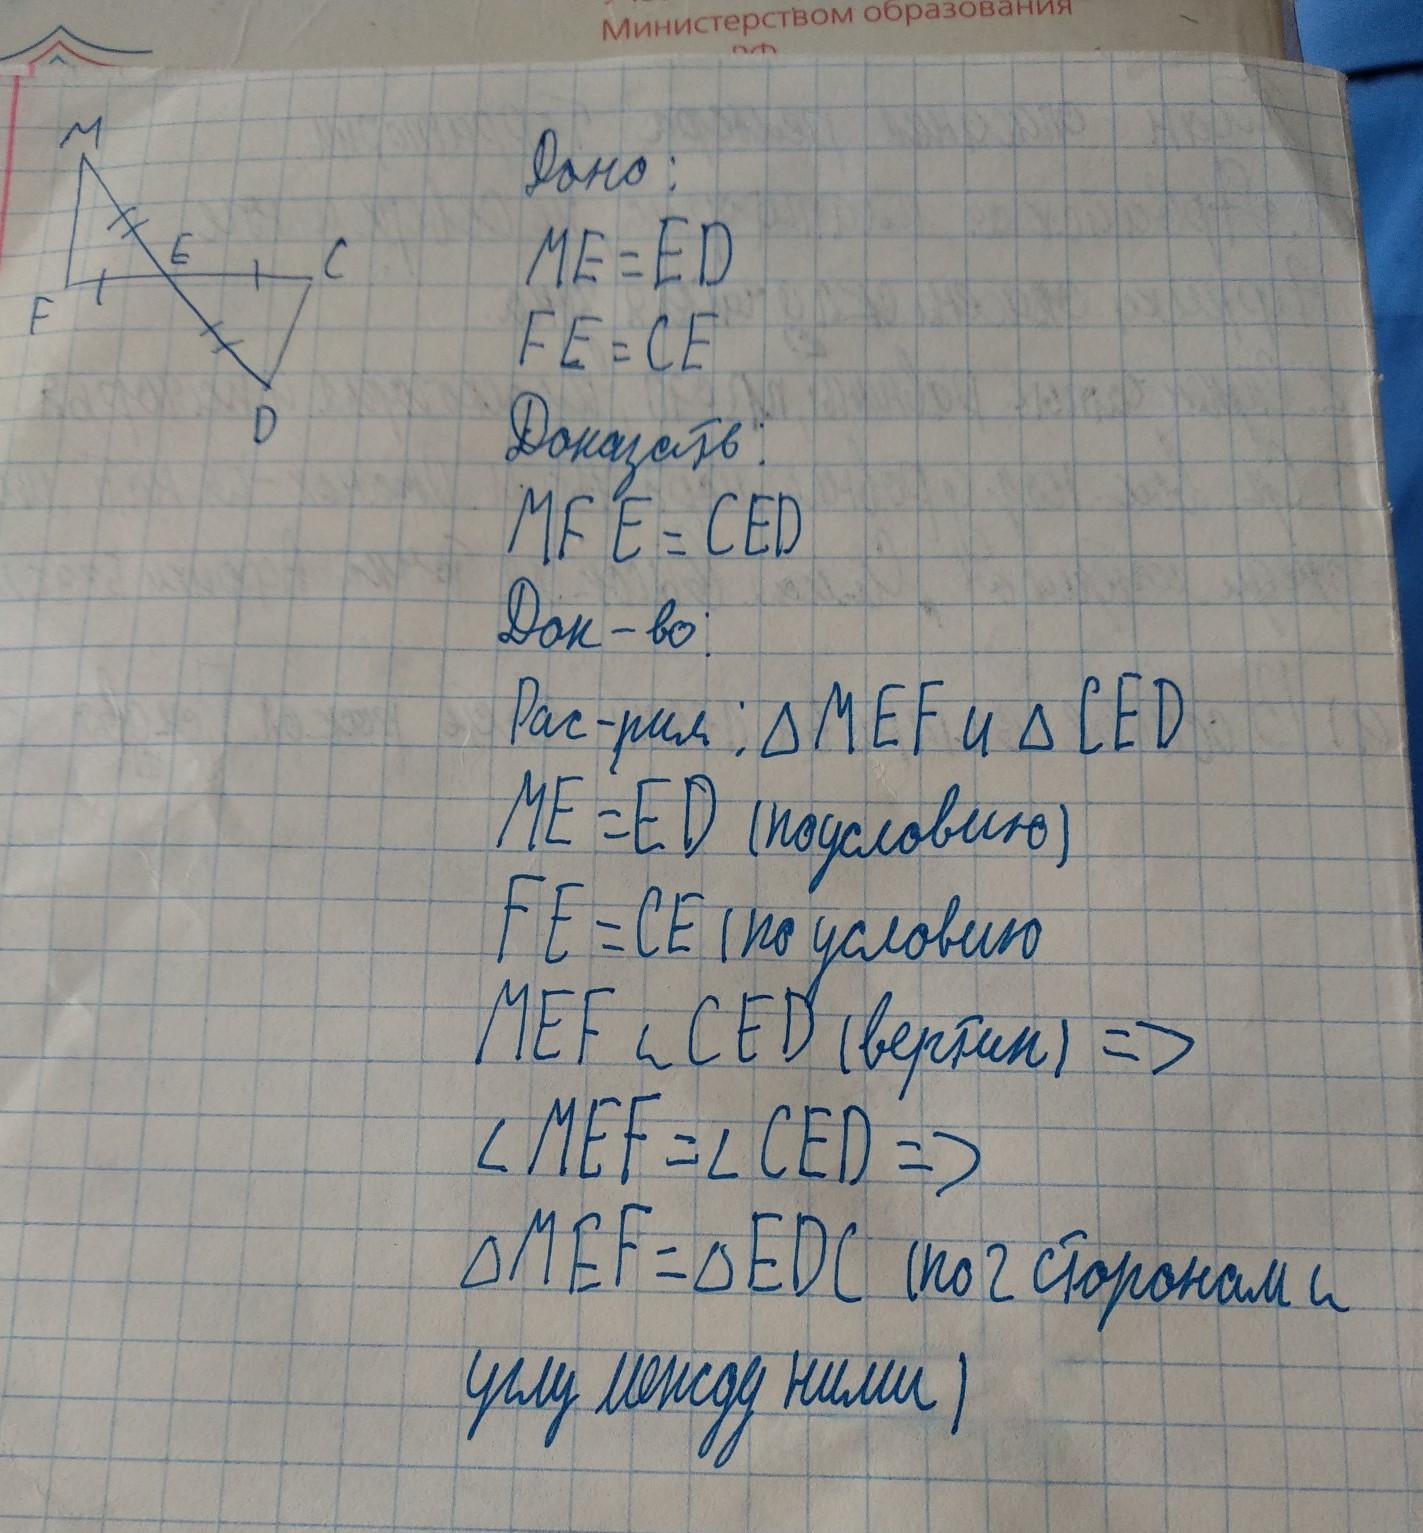 Министерством образования
РФ
M
E
C
F
D
Дано:
ME=ED
FE=CE
Доказать:
MFE=CED
Док-во:
Рас-рим: △MEF и △CED
ME=ED (по условию)
FE=CE (по условию
MEF и CED (вертик) =>
∠MEF=∠CED =>
△MEF=△EDC (по 2 сторонам и
углу между ними)